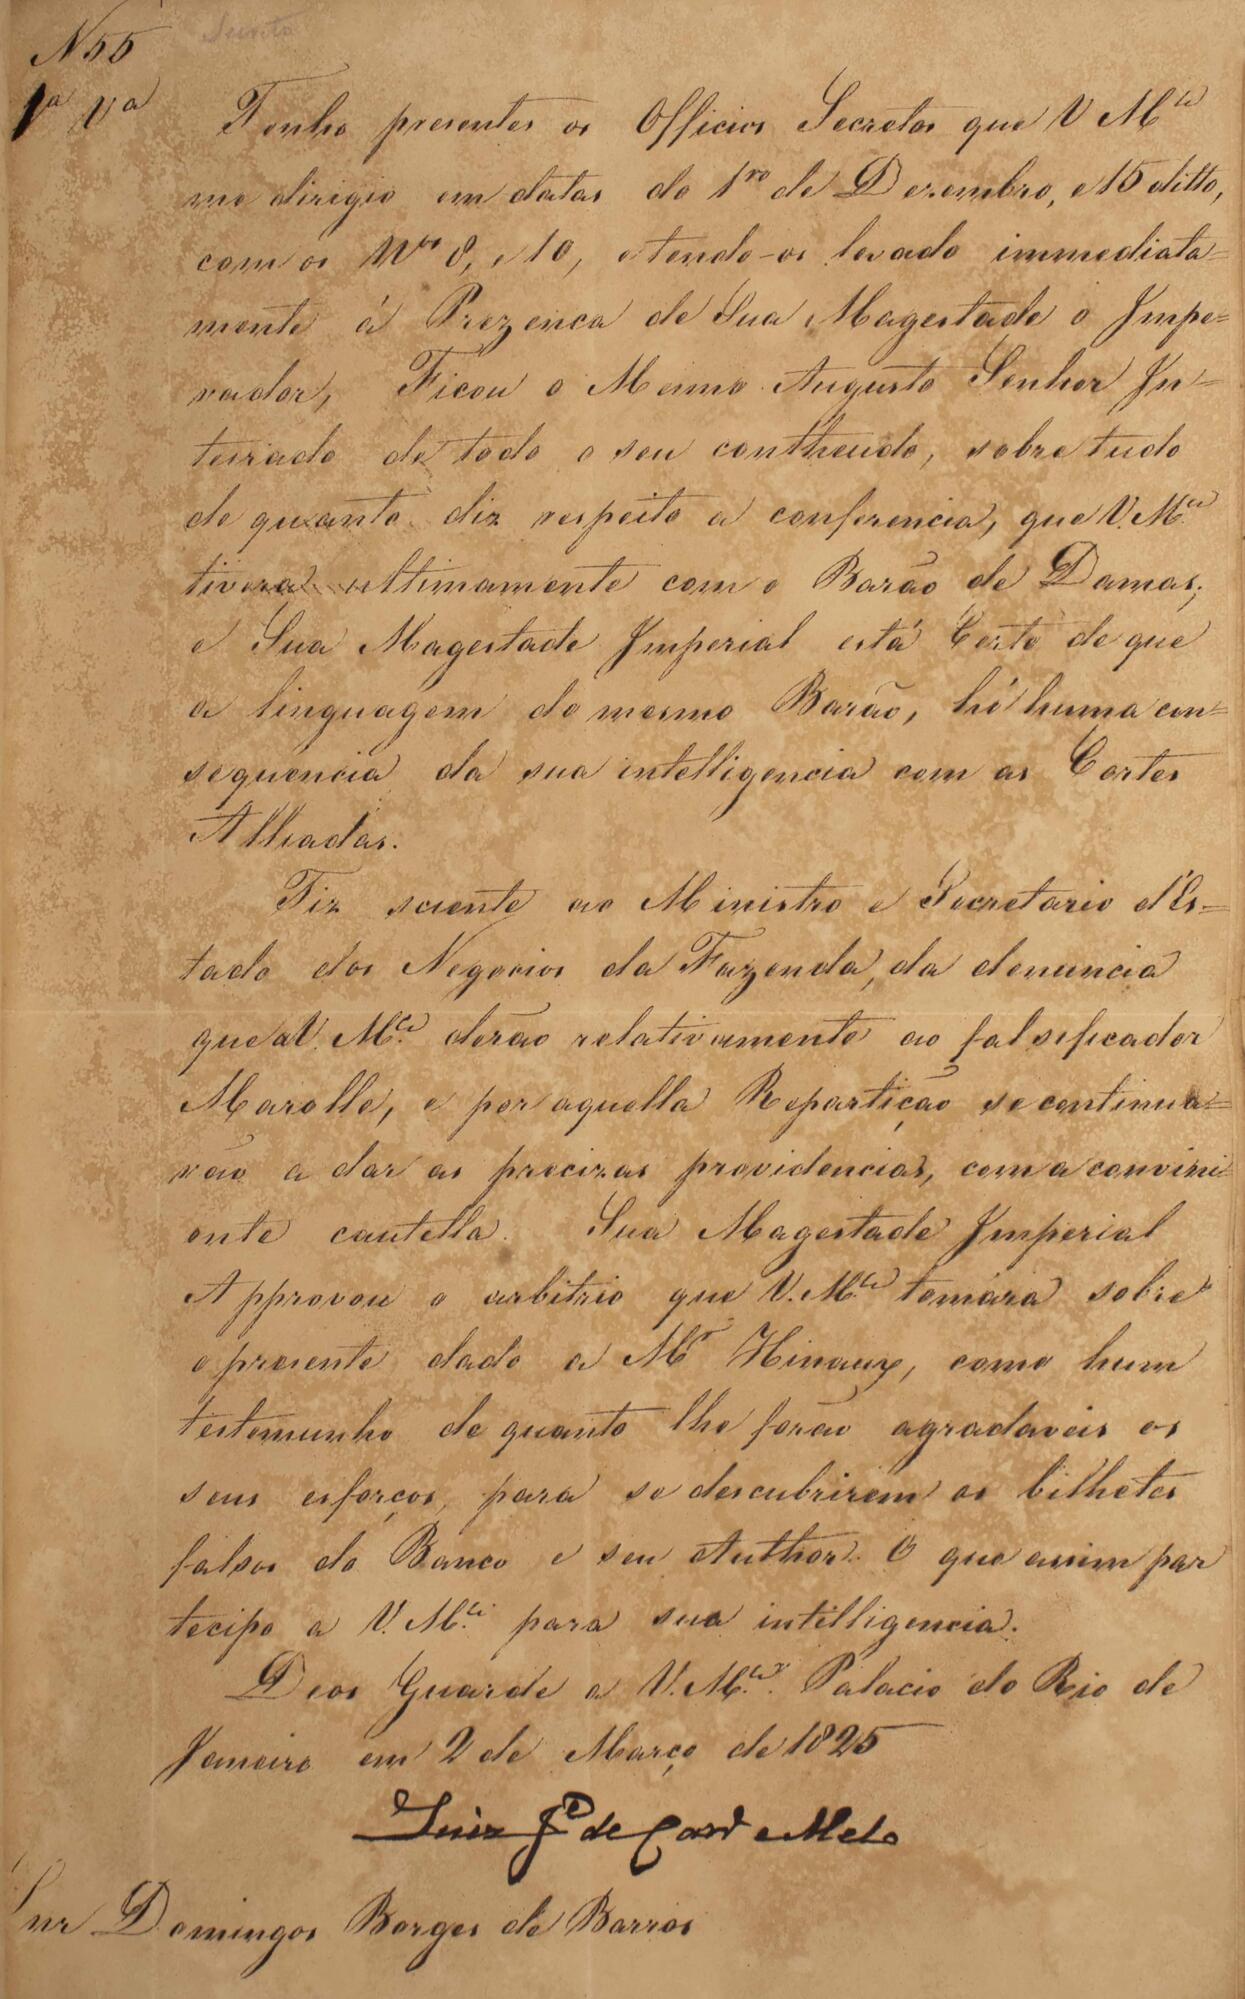 N 55
Secreto
1ª Vª
Tenho presentes os Officios Secretos que V Mce
me dirigio em datas do 1ro de Dezembro, e 15 ditto,
com os Nos 8, e 10, e tendo-os levado immediata=
mente á Prezenca de Sua Magestade o Impe=
rador, Ficou o Mesmo Augusto Senhor In=
teirado de todo o seu contheudo, sobre tudo
de quanto diz respeito a conferencia, que V. Mce
tivera ultimamente com o Barão de Damas;
e Sua Magestade Imperial está Certo de que
a linguagem do mesmo Barão, hé huma con=
sequencia da sua intelligencia com as Cortes
Alliadas.
Fiz sciente ao Ministro e Secretario d'Es=
tado dos Negocios da Fazenda, da denuncia
que a V. Mce derão relativamente ao falsificador
Marolle, e por aquella Repartição se continua=
rão a dar as precizas providencias, com a convini
ente cautella. Sua Magestade Imperial
Approvou o arbitrio que V. Mce tomára sobre
o presente dado a Mr Hinaux, como hum
testemunho de quanto lhe forão agradaveis os
seus esforços, para se descubrirem os bilhetes
falsos do Banco e seu Author. O que assim par
tecipo a V. Mce para sua intilligencia.
Deos Guarde a V. Mce. Palacio do Rio de
Janeiro em 2 de Março de 1825
Luiz Je de Carv e Melo
Snr Domingos Borges de Barros